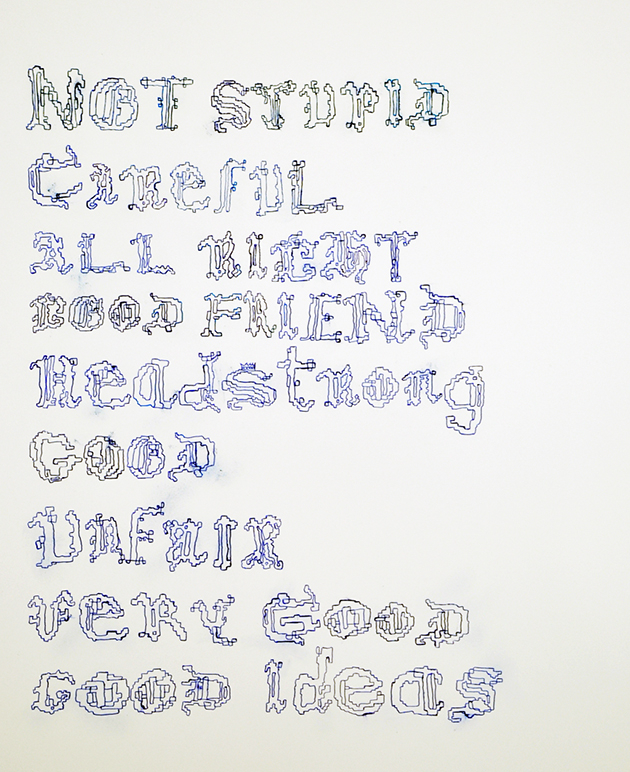 NOT STUPID
CAReFUL
ALL RIGHT
GOOD FRIEND
Headstrong
GOOD
UnFAIR
VeRY GOOD
GOOD Ideas